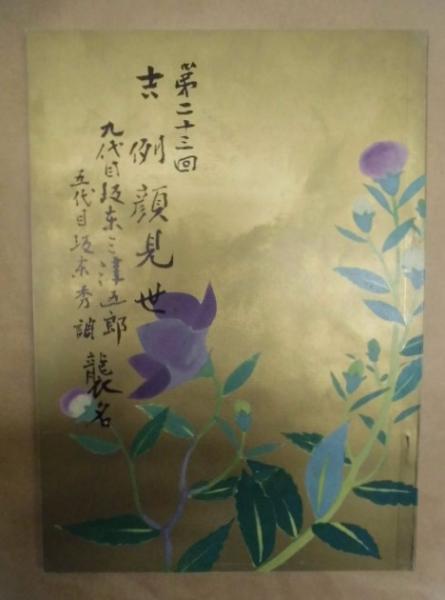 第二十三回
吉例顔見世
九代目坂东三津五郎
五代目坂东秀調
襲名